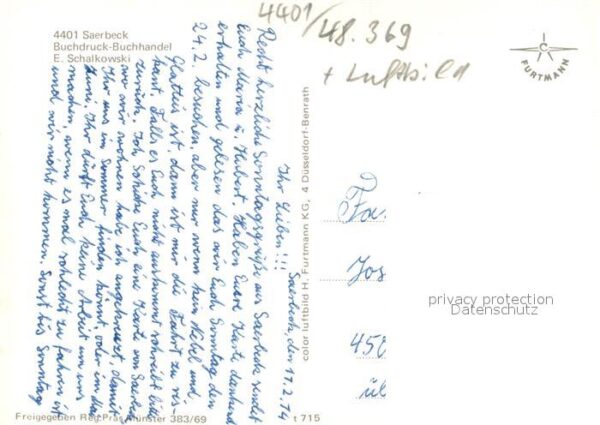 4401/48.369
+ Luftbild
4401 Saerbeck
Buchdruck-Buchhandel
E. Schalkowski
FURTMANN
Saerbeck, den 17.2.74
Ihr Lieben!!!
Recht herzliche Sonntagsgrüße aus Saerbeck sendet
Euch Maria u. Hubert. Haben Eure Karte dankend
erhalten und gelesen das wir Euch Sonntag den
24.2. besuchen, aber nur wenn kein Nebel und
Glatteis ist, dann ist mir die Fahrt zu ris-
kant. Falls es Euch nicht auskommt schreibt bitte
zurück. Ich schicke Euch eine Karte von Saerbeck
wo wir wohnen habe ich angekreuzt, damit
Ihr uns im Sommer finden könnt, oder im Mai
Juni. Ihr dürft Euch keine Arbeit um uns
machen, wenn es mal schlecht zu fahren ist
und wir nicht kommen. Sonst bis Sonntag
color luftbild H. Furtmann KG, 4 Düsseldorf-Benrath
Fa.
Jos
privacy protection
Datenschutz
450
üb
Freigegeben Reg.Präs. Münster 383/69
t 715